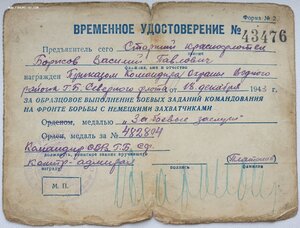 Форма № 2
ВРЕМЕННОЕ УДОСТОВЕРЕНИЕ № 43476
Предъявитель сего Старший краснофлотец
Борисов Василий Павлович
фамилия, имя и отчество
награжден Приказом Командира Охраны Водного
района Г.Б. Северного флота от 18 декабря 1943 г.
ЗА ОБРАЗЦОВОЕ ВЫПОЛНЕНИЕ БОЕВЫХ ЗАДАНИЙ КОМАНДОВАНИЯ
НА ФРОНТЕ БОРЬБЫ С НЕМЕЦКИМИ ЗАХВАТЧИКАМИ
Орденом, медалью "За боевые заслуги"
Орден, медаль за № 482804
Командир ОВР Г.Б. СФ
должность, воинское звание вручившего
Контр-адмирал
награду
(Платонов)
М. П.